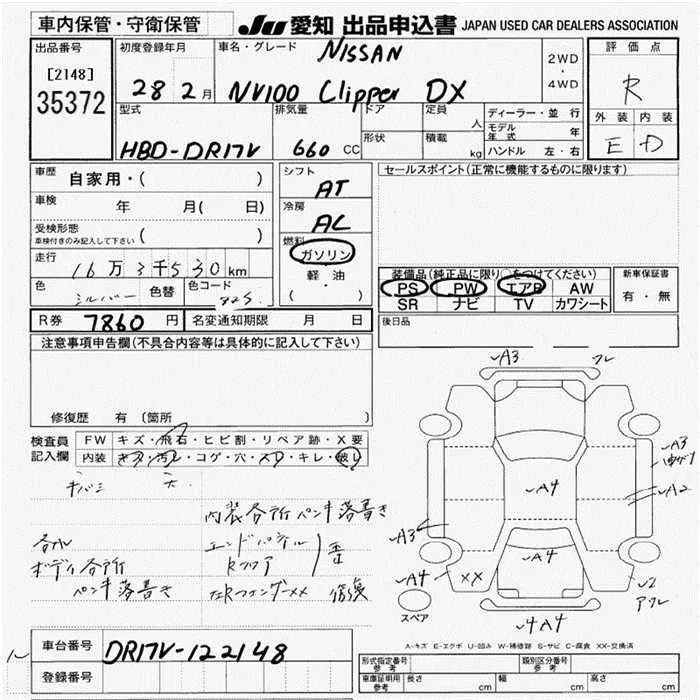 車内保管・守衛保管
JU 愛知 出品申込書 JAPAN USED CAR DEALERS ASSOCIATION
出品番号
[2148]
35372
初度登録年月
28年 2月
車名・グレード
NISSAN
NV100 Clipper DX
2WD
・
4WD
評価点
R
外装 内装
E D
型式
HBD-DR17V
排気量
660 CC
ドア
形状
定員
人
積載
kg
ディーラー・並行
モデル年式 年
ハンドル 左・右
車歴
自家用・( )
車検
年 月( 日)
受検形態
車検付きのみ記入して下さい ( )
走行
16万3千530km
色
シルバー
色替
色コード
シフト
AT
冷房
AC
燃料
ガソリン
軽・油
( ・ )
セールスポイント(正常に機能するものに限ります)
装備品(純正品に限り○をつけてください)
PS PW エアB AW
SR ナビ TV カワシート
新車保証書
有・無
後日品
R券 7860 円
名変通知期限 月 日
注意事項申告欄(不具合内容等は具体的に記入して下さい)
修復歴 有 〔箇所 〕
検査員記入欄
FW キズ・飛石・ヒビ割・リペア跡・X要
内装 キズ・汚れ・コゲ・穴・スレ・キレ・破レ
内装各所ペンキ落書き
ボディ各所
ペンキ落書き
エンドパネル
Rフロア
歪
修復
A3
A3
A2
A4
A3
A4
A4
XX
4A4
スペア
A-キズ E-エクボ U-凹み W-補修跡 S-サビ C-腐食 XX-交換済
車台番号 DR17V-122148
登録番号
形式指定番号 参考
類別区分番号 参考
車庫証明用 参考
長さ cm
幅 cm
高さ cm